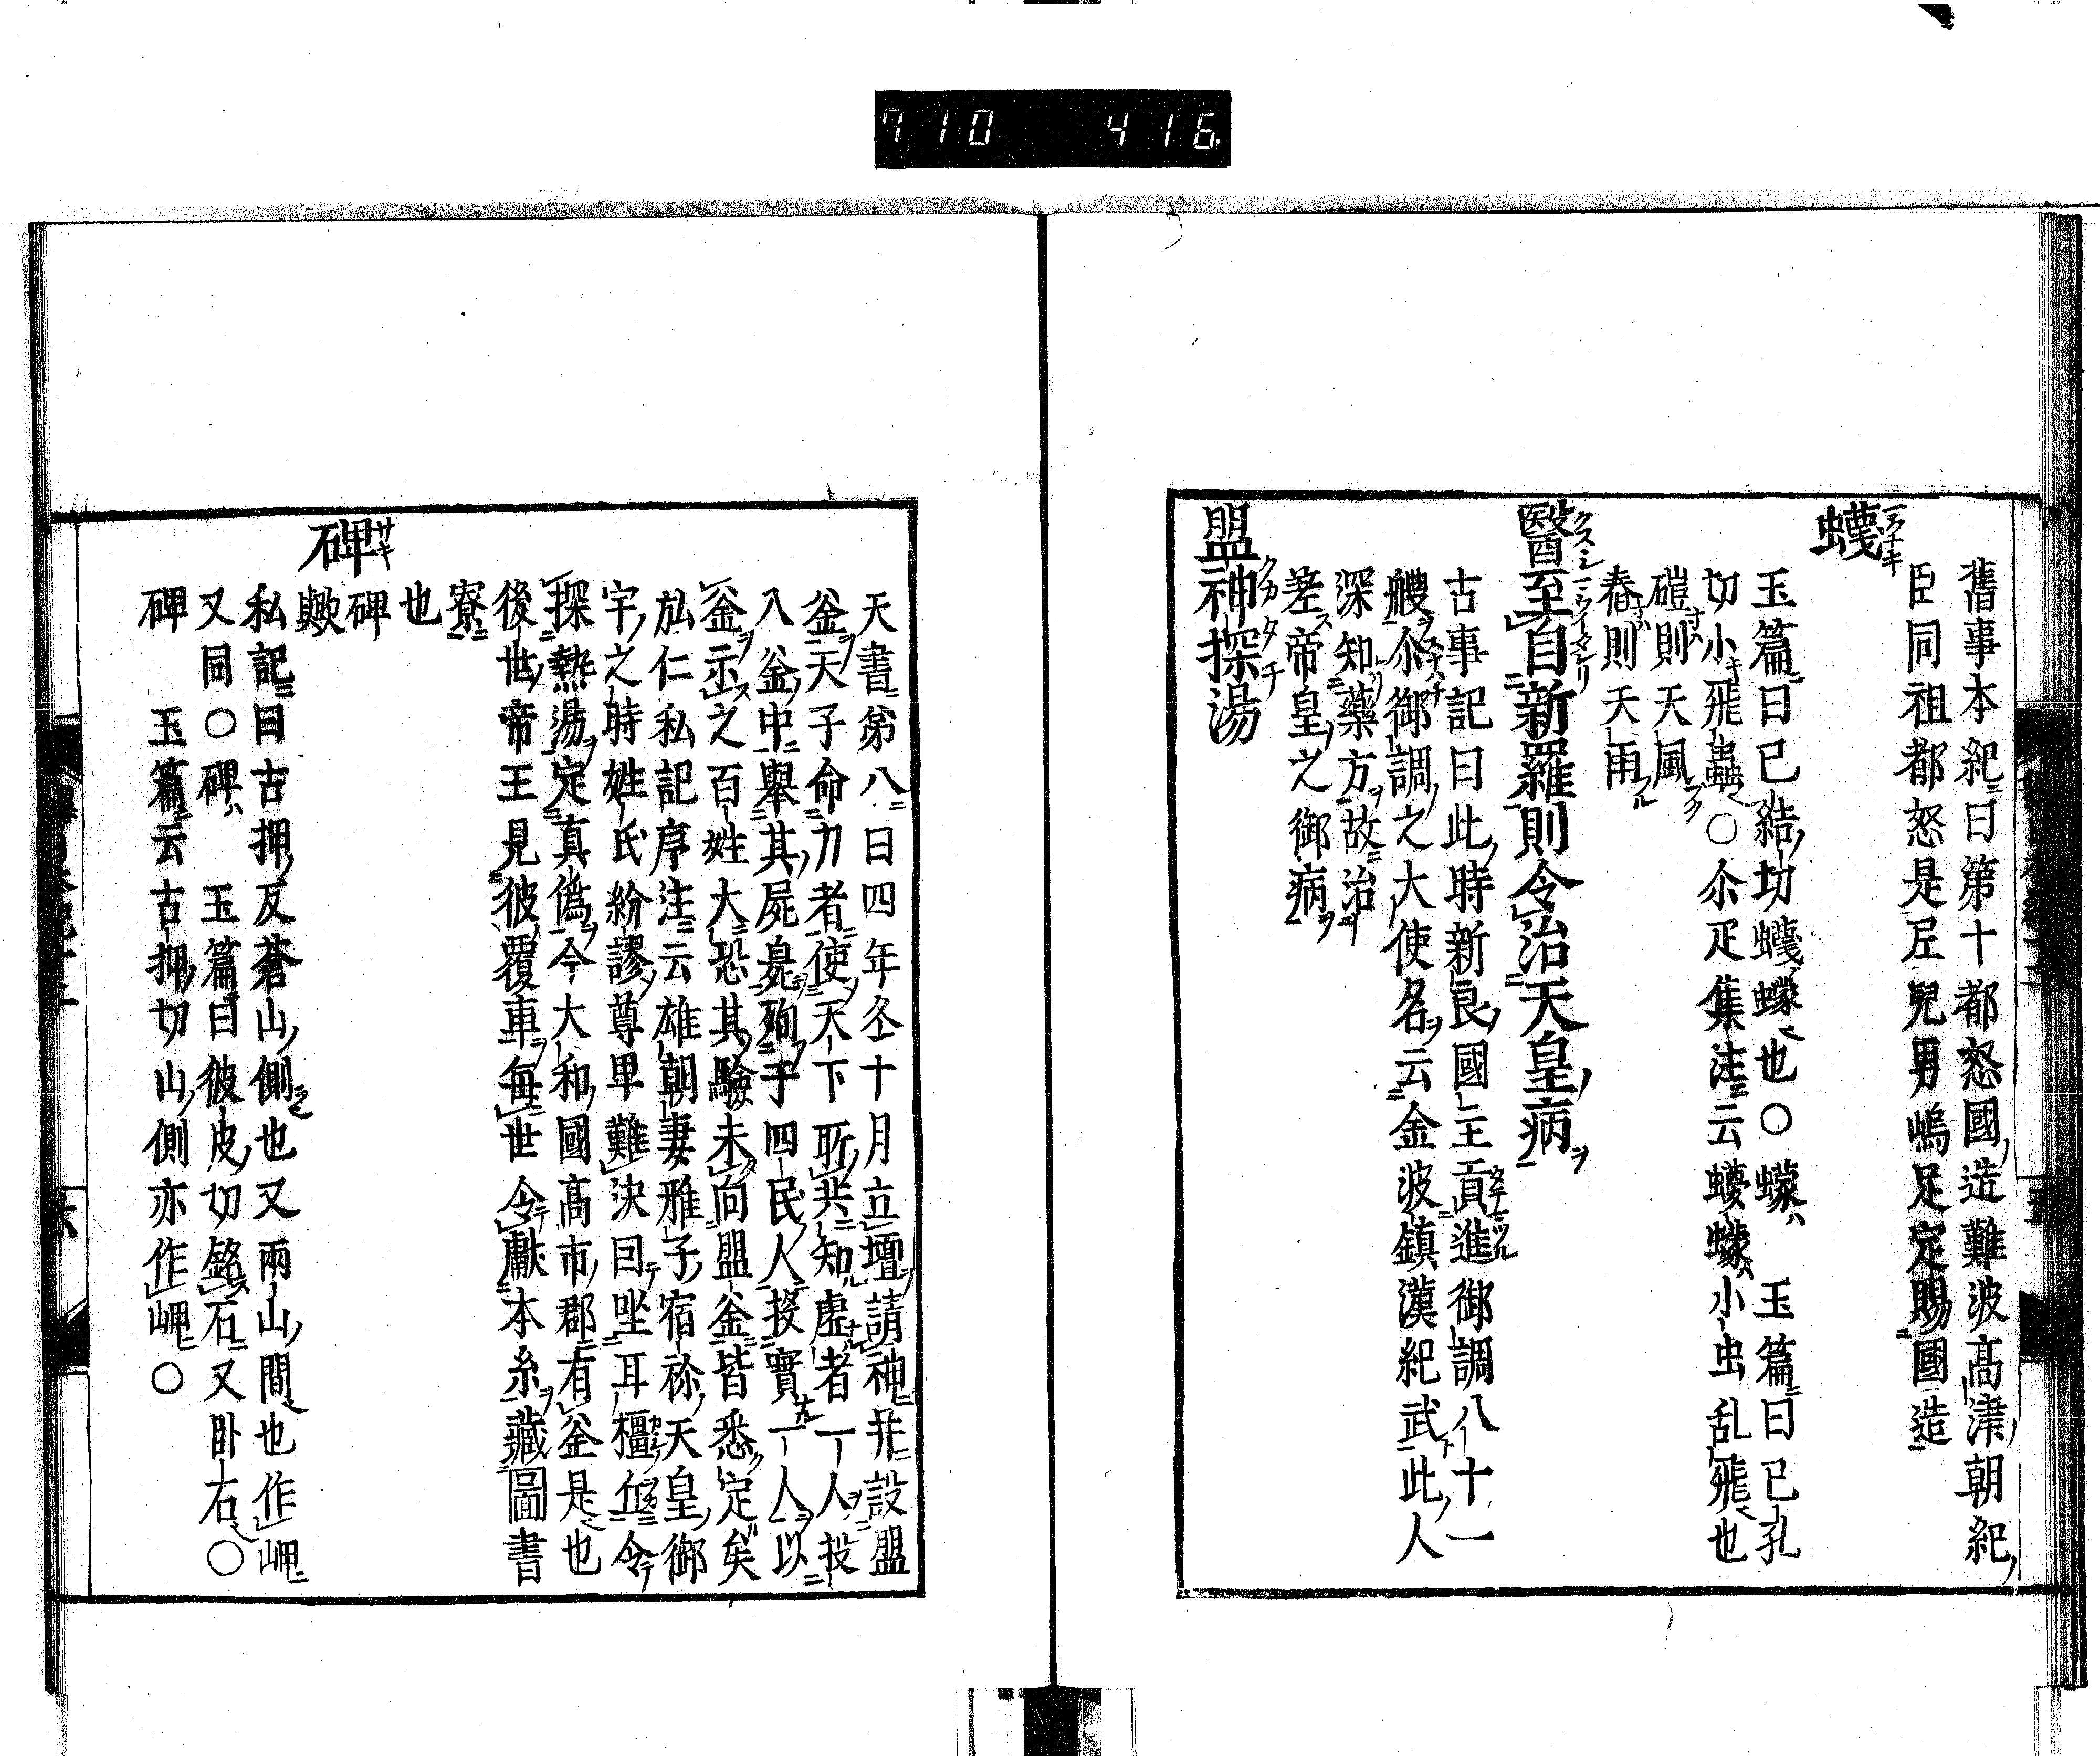 710 416
舊事本紀曰第十都怒國造難波高津朝紀
臣同祖都怒是足兒男嶋足定賜國造
蠛
玉篇曰已結切蠛蠓也〇蠓 玉篇曰已孔
切小飛蟲〇尓疋集注云蠛蠓小虫乱飛也
磑則天風
舂則天雨
醫至自新羅則令治天皇病
古事記曰此時新良國主貢進御調八十一
艘尓御調之大使名云金波鎮漢紀武此人
深知藥方故治
差帝皇之御病
盟神探湯
天書第八曰四年冬十月立壇請神并設盟
釜天子命力者使天下所共知虛者一人投
入釜中舉其屍㒵殉于四民人投實一人以
釜示之百姓大恐其驗未向盟釜皆悉定矣
弘仁私記序注云雄朝妻雅子宿祢天皇御
宇之時姓氏紛謬尊卑難決曰坐耳橿丘令
探熱湯定真偽今大和國高市郡有釜是也
後世帝王見彼覆車每世令獻本系藏圖書
寮
也
碑
碑
歟
私記曰古押反蒼山側也又兩山間也作岬
又同〇碑 玉篇曰彼皮切銘石又臥右〇
碑 玉篇云古押切山側亦作岬〇